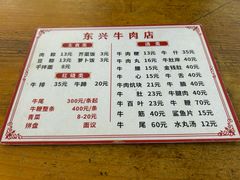 东兴牛肉店
主食类
汤类
肉粽 13元 芥菜饭 3元
豆粽 13元 萝卜饭 3元
干拌面 8元
红烧类
牛排 35元 牛蹄 20元
牛尾 300元/条起
牛鞭整条 400元/条
青菜 8-20元
拼盘 面议
牛肉羹 13元 牛什 35元
牛肉丸 16元 牛肚岸 40元
牛腰 15元 金钱肚 40元
牛肚 40元 牛心 15元
牛肉烧块 21元 牛肝 15元
牛肚心 40元 牛舌 40元
牛百叶 23元 牛腿肉 40元
牛筋 40元 鲨鱼片 15元
牛尾 60元 水丸汤 12元